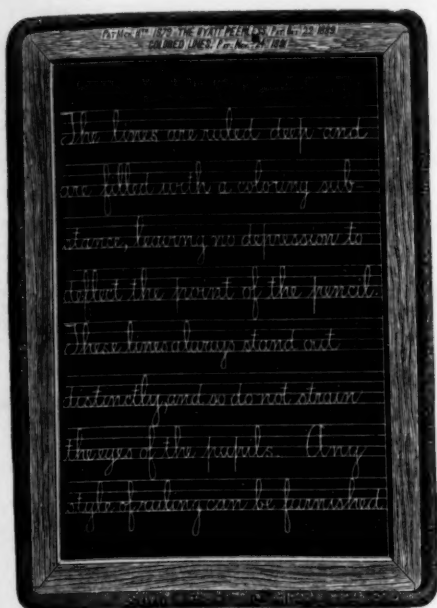 THE HYATT PEERLESS, Pat. 1889
COLORED LINES, 1881.
The lines are ruled deep and
are filled with a coloring sub-
stance, leaving no depression to
deflect the point of the pencil.
These lines always stand out
distinctly, and so do not strain
the eyes of the pupils. Any
style of ruling can be furnished